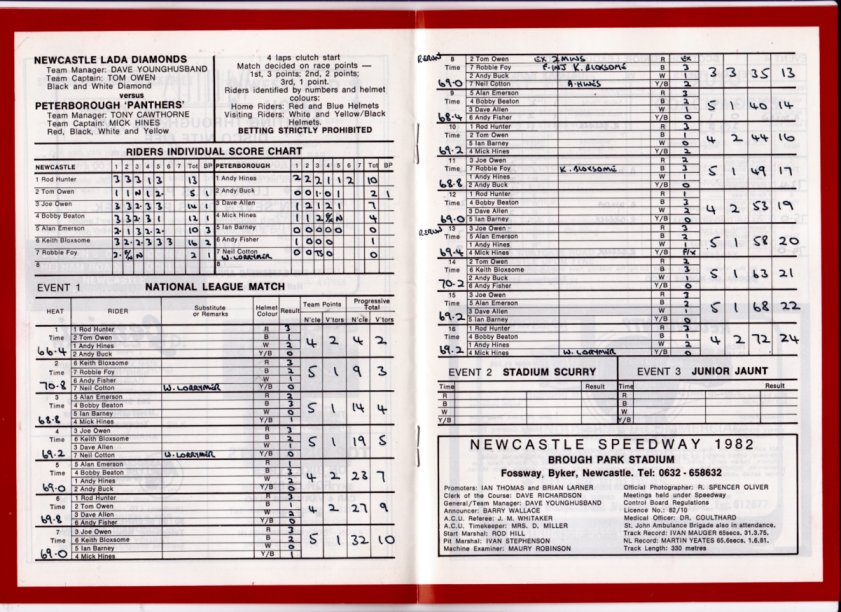 NEWCASTLE LADA DIAMONDS
Team Manager: DAVE YOUNGHUSBAND
Team Captain: TOM OWEN
Black and White Diamond
versus
PETERBOROUGH 'PANTHERS'
Team Manager: TONY CAWTHORNE
Team Captain: MICK HINES
Red, Black, White and Yellow
4 laps clutch start
Match decided on race points —
1st, 3 points; 2nd, 2 points;
3rd, 1 point.
Riders identified by numbers and helmet
colours:
Home Riders: Red and Blue Helmets
Visiting Riders: White and Yellow/Black
Helmets.
BETTING STRICTLY PROHIBITED
RIDERS INDIVIDUAL SCORE CHART
NEWCASTLE 1 2 3 4 5 6 7 Tot BP PETERBOROUGH 1 2 3 4 5 6 7 Tot BP
1 Rod Hunter 3 3 3 1 3 13 1 Andy Hines 2 2 2 1 1 2 10
2 Tom Owen 1 1 N 1 2· 5 1 2 Andy Buck 0 0 1· 0 1 2 1
3 Joe Owen 3 3 2· 3 3 14 1 3 Dave Allen 1 2 1 2 1 7
4 Bobby Beaton 3 3 2· 3 1 12 1 4 Mick Hines 1 1 2 N 4
5 Alan Emerson 2· 1 3 2· 2· 10 3 5 Ian Barney 0 0 0 0 0 0
6 Keith Bloxsome 3 2· 2· 3 3 3 16 2 6 Andy Fisher 1 0 0 0 1
7 Robbie Foy 2· N 2 1 7 Neil Cotton 0 0 0 0
8 W. LORRYMER
EVENT 1 NATIONAL LEAGUE MATCH
HEAT RIDER Substitute or Remarks Helmet Colour Result Team Points Progressive Total
N'cle V'tors N'cle V'tors
1 1 Rod Hunter R 3
Time 2 Tom Owen B 1 4 2 4 2
1 Andy Hines W 2
66·4 2 Andy Buck Y/B 0
2 6 Keith Bloxsome R 3
Time 7 Robbie Foy B 2 5 1 9 3
6 Andy Fisher W 1
70·8 7 Neil Cotton W. LORRYMER Y/B 0
3 5 Alan Emerson R 2
Time 4 Bobby Beaton B 3 5 1 14 4
5 Ian Barney W 0
68·8 4 Mick Hines Y/B 1
4 3 Joe Owen R 3
Time 6 Keith Bloxsome B 2 5 1 19 5
3 Dave Allen W 1
69·2 7 Neil Cotton W. LORRYMER Y/B 0
5 5 Alan Emerson R 1
Time 4 Bobby Beaton B 3 4 2 23 7
1 Andy Hines W 2
69·0 2 Andy Buck Y/B 0
6 1 Rod Hunter R 3
Time 2 Tom Owen B 1 4 2 27 9
3 Dave Allen W 2
69·8 6 Andy Fisher Y/B 0
7 3 Joe Owen R 3
Time 6 Keith Bloxsome B 2 5 1 32 10
5 Ian Barney W 0
69·0 4 Mick Hines Y/B 1
RERUN 8 2 Tom Owen EX 2 MINS R EX
Time 7 Robbie Foy F-INJ K. BLOXSOME B 3 3 3 35 13
2 Andy Buck W 1
69·0 7 Neil Cotton A. HINES Y/B 2
9 5 Alan Emerson R 3
Time 4 Bobby Beaton B 2 5 1 40 14
3 Dave Allen W 1
68·4 6 Andy Fisher Y/B 0
10 1 Rod Hunter R 3
Time 2 Tom Owen B 1 4 2 44 16
5 Ian Barney W 0
69·2 4 Mick Hines Y/B 2
11 3 Joe Owen R 2
Time 7 Robbie Foy K. BLOXSOME B 3 5 1 49 17
1 Andy Hines W 1
68·8 2 Andy Buck Y/B 0
12 1 Rod Hunter R 1
Time 4 Bobby Beaton B 3 4 2 53 19
3 Dave Allen W 2
69·0 5 Ian Barney Y/B 0
RERUN 13 3 Joe Owen R 3
Time 5 Alan Emerson B 2 5 1 58 20
1 Andy Hines W 1
69·4 4 Mick Hines Y/B F/X
14 2 Tom Owen R 2
Time 6 Keith Bloxsome B 3 5 1 63 21
2 Andy Buck W 1
70·2 6 Andy Fisher Y/B 0
15 3 Joe Owen R 3
Time 5 Alan Emerson B 2 5 1 68 22
3 Dave Allen W 1
69·2 5 Ian Barney Y/B 0
16 1 Rod Hunter R 3
Time 4 Bobby Beaton B 1 4 2 72 24
1 Andy Hines W 2
69·2 4 Mick Hines W. LORRYMER Y/B 0
EVENT 2 STADIUM SCURRY EVENT 3 JUNIOR JAUNT
Time Result Time Result
R R
B B
W W
Y/B Y/B
NEWCASTLE SPEEDWAY 1982
BROUGH PARK STADIUM
Fossway, Byker, Newcastle. Tel: 0632 - 658632
Promoters: IAN THOMAS and BRIAN LARNER
Clerk of the Course: DAVE RICHARDSON
General/Team Manager: DAVE YOUNGHUSBAND
Announcer: BARRY WALLACE
A.C.U. Referee: J. M. WHITAKER
A.C.U. Timekeeper: MRS. D. MILLER
Start Marshal: ROD HILL
Pit Marshal: IAN STEPHENSON
Machine Examiner: MAURY ROBINSON
Official Photographer: R. SPENCER OLIVER
Meetings held under Speedway
Control Board Regulations
Licence No.: 82/10
Medical Officer: DR. COULTHARD
St. John Ambulance Brigade also in attendance.
Track Record: IVAN MAUGER 65secs. 31.3.75.
NL Record: MARTIN YEATES 65.6secs. 1.6.81.
Track Length: 330 metres